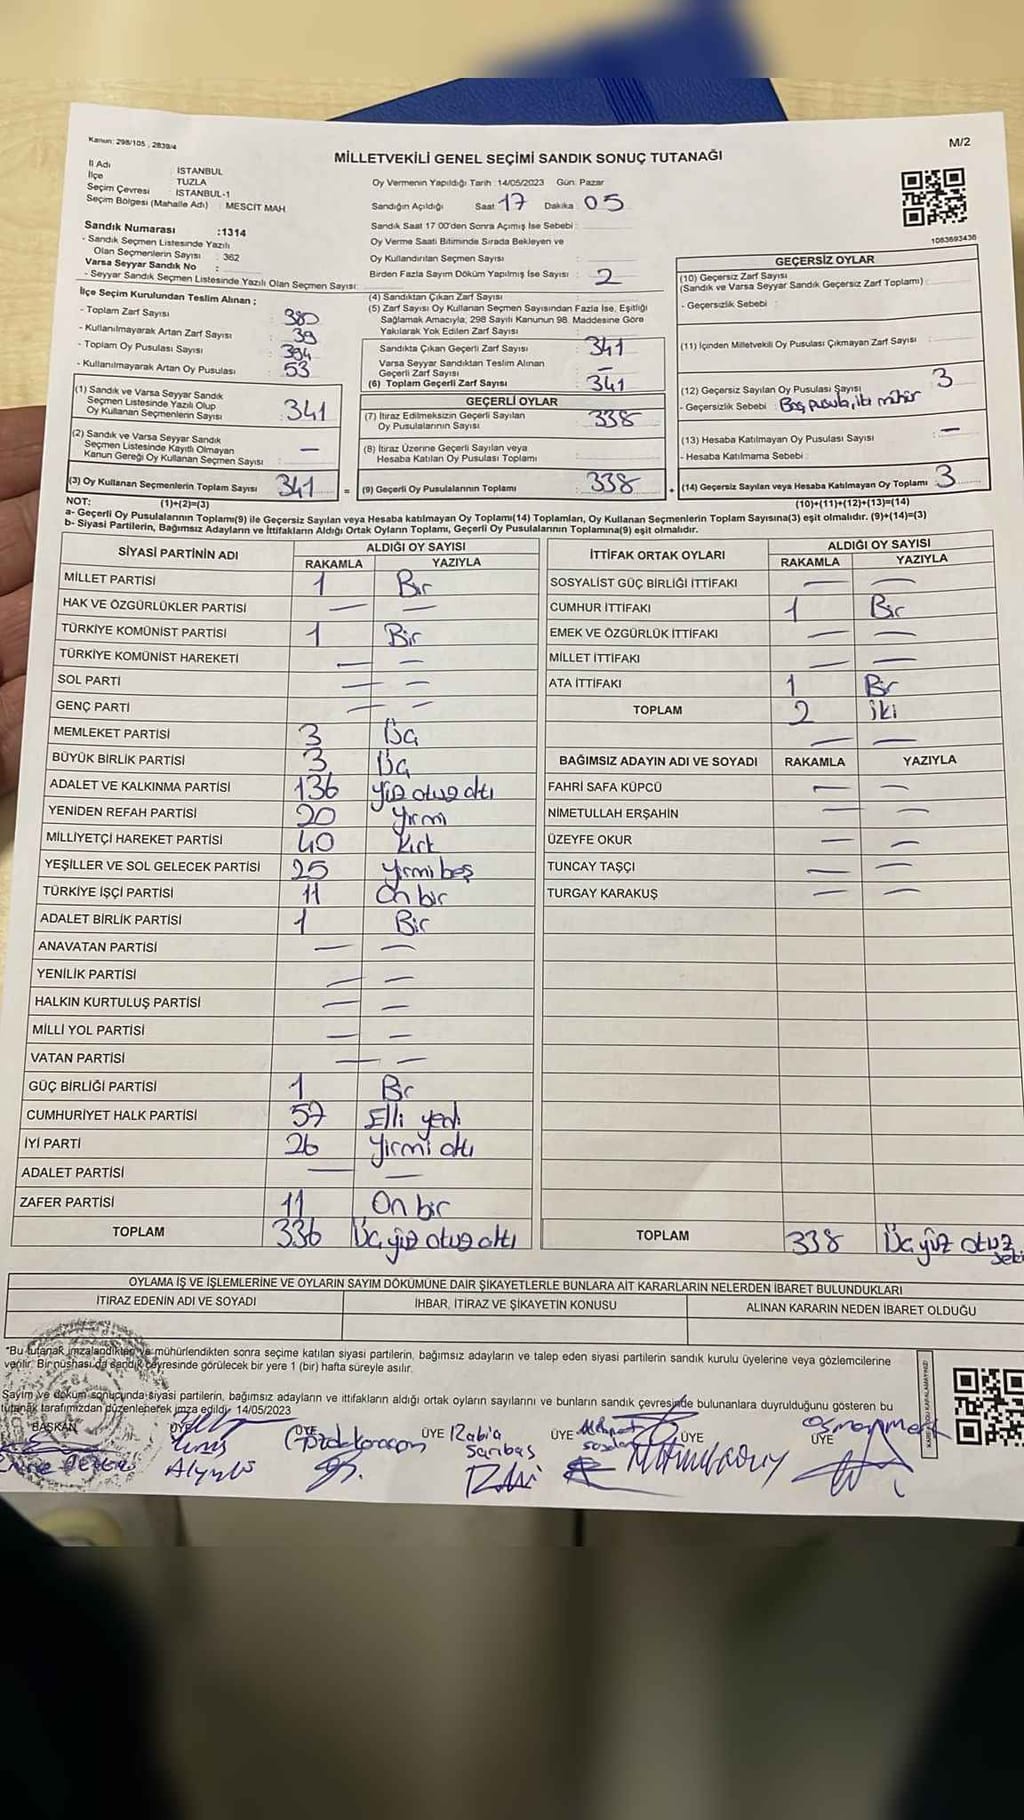 Kanun: 298/105 , 2839/4
M/2
MİLLETVEKİLİ GENEL SEÇİMİ SANDIK SONUÇ TUTANAĞI
İl Adı : İSTANBUL
İlçe : TUZLA
Seçim Çevresi : İSTANBUL-1
Seçim Bölgesi (Mahalle Adı) : MESCİT MAH
Sandık Numarası :1314
- Sandık Seçmen Listesinde Yazılı
Olan Seçmenlerin Sayısı : 362
Varsa Seyyar Sandık No :
- Seyyar Sandık Seçmen Listesinde Yazılı Olan Seçmen Sayısı:
Oy Vermenin Yapıldığı Tarih 14/05/2023 Gün: Pazar
Sandığın Açıldığı Saat 17 Dakika 05
Sandık Saat 17 00'den Sonra Açımış İse Sebebi :
Oy Verme Saati Bitiminde Sırada Bekleyen ve
Oy Kullandırılan Seçmen Sayısı :
Birden Fazla Sayım Döküm Yapılmış İse Sayısı : 2
1083693436
İlçe Seçim Kurulundan Teslim Alınan ;
- Toplam Zarf Sayısı : 380
- Kullanılmayarak Artan Zarf Sayısı : 39
- Toplam Oy Pusulası Sayısı : 394
- Kullanılmayarak Artan Oy Pusulası : 53
(1) Sandık ve Varsa Seyyar Sandık
Seçmen Listesinde Yazılı Olup
Oy Kullanan Seçmenlerin Sayısı : 341
(2) Sandık ve Varsa Seyyar Sandık
Seçmen Listesinde Kayıtlı Olmayan
Kanun Gereği Oy Kullanan Seçmen Sayısı : —
(3) Oy Kullanan Seçmenlerin Toplam Sayısı : 341 =
(4) Sandıktan Çıkan Zarf Sayısı :
(5) Zarf Sayısı Oy Kullanan Seçmen Sayısından Fazla İse, Eşitliği
Sağlamak Amacıyla, 298 Sayılı Kanunun 98. Maddesine Göre
Yakılarak Yok Edilen Zarf Sayısı :
Sandıkta Çıkan Geçerli Zarf Sayısı : 341
Varsa Seyyar Sandıktan Teslim Alınan
Geçerli Zarf Sayısı : —
(6) Toplam Geçerli Zarf Sayısı : 341
GEÇERLİ OYLAR
(7) İtiraz Edilmeksizin Geçerli Sayılan
Oy Pusulalarının Sayısı : 338
(8) İtiraz Üzerine Geçerli Sayılan veya
Hesaba Katılan Oy Pusulası Toplamı :
(9) Geçerli Oy Pusulalarının Toplamı : 338 +
GEÇERSİZ OYLAR
(10) Geçersiz Zarf Sayısı
(Sandık ve Varsa Seyyar Sandık Geçersiz Zarf Toplamı) :
- Geçersizlik Sebebi :
(11) İçinden Milletvekili Oy Pusulası Çıkmayan Zarf Sayısı :
(12) Geçersiz Sayılan Oy Pusulası Sayısı : 3
- Geçersizlik Sebebi : Boş pusula, iki mühür
(13) Hesaba Katılmayan Oy Pusulası Sayısı : —
- Hesaba Katılmama Sebebi :
(14) Geçersiz Sayılan veya Hesaba Katılmayan Oy Toplamı : 3
NOT: (1)+(2)=(3) (10)+(11)+(12)+(13)=(14)
a- Geçerli Oy Pusulalarının Toplamı(9) ile Geçersiz Sayılan veya Hesaba katılmayan Oy Toplamı(14) Toplamları, Oy Kullanan Seçmenlerin Toplam Sayısına(3) eşit olmalıdır. (9)+(14)=(3)
b- Siyasi Partilerin, Bağımsız Adayların ve İttifakların Aldığı Ortak Oyların Toplamı, Geçerli Oy Pusulalarının Toplamına(9) eşit olmalıdır.
SİYASİ PARTİNİN ADI ALDIĞI OY SAYISI
RAKAMLA YAZIYLA
MİLLET PARTİSİ 1 Bir
HAK VE ÖZGÜRLÜKLER PARTİSİ — —
TÜRKİYE KOMÜNİST PARTİSİ 1 Bir
TÜRKİYE KOMÜNİST HAREKETİ — —
SOL PARTİ — —
GENÇ PARTİ — —
MEMLEKET PARTİSİ 3 Üç
BÜYÜK BİRLİK PARTİSİ 3 Üç
ADALET VE KALKINMA PARTİSİ 136 Yüz otuz altı
YENİDEN REFAH PARTİSİ 20 Yirmi
MİLLİYETÇİ HAREKET PARTİSİ 40 Kırk
YEŞİLLER VE SOL GELECEK PARTİSİ 25 Yirmi beş
TÜRKİYE İŞÇİ PARTİSİ 11 On bir
ADALET BİRLİK PARTİSİ 1 Bir
ANAVATAN PARTİSİ — —
YENİLİK PARTİSİ — —
HALKIN KURTULUŞ PARTİSİ — —
MİLLİ YOL PARTİSİ — —
VATAN PARTİSİ — —
GÜÇ BİRLİĞİ PARTİSİ 1 Bir
CUMHURİYET HALK PARTİSİ 57 Elli yedi
İYİ PARTİ 26 Yirmi altı
ADALET PARTİSİ — —
ZAFER PARTİSİ 11 On bir
TOPLAM 336 Üç yüz otuz altı
İTTİFAK ORTAK OYLARI ALDIĞI OY SAYISI
RAKAMLA YAZIYLA
SOSYALİST GÜÇ BİRLİĞİ İTTİFAKI — —
CUMHUR İTTİFAKI 1 Bir
EMEK VE ÖZGÜRLÜK İTTİFAKI — —
MİLLET İTTİFAKI — —
ATA İTTİFAKI 1 Bir
TOPLAM 2 İki
— —
BAĞIMSIZ ADAYIN ADI VE SOYADI RAKAMLA YAZIYLA
FAHRİ SAFA KÜPCÜ — —
NİMETULLAH ERŞAHİN — —
ÜZEYFE OKUR — —
TUNCAY TAŞÇI — —
TURGAY KARAKUŞ — —
TOPLAM 338 Üç yüz otuz sekiz
OYLAMA İŞ VE İŞLEMLERİNE VE OYLARIN SAYIM DÖKÜMÜNE DAİR ŞİKAYETLERLE BUNLARA AİT KARARLARIN NELERDEN İBARET BULUNDUKLARI
İTİRAZ EDENİN ADI VE SOYADI İHBAR, İTİRAZ VE ŞİKAYETİN KONUSU ALINAN KARARIN NEDEN İBARET OLDUĞU
*Bu tutanak imzalandıktan ve mühürlendikten sonra seçime katılan siyasi partilerin, bağımsız adayların ve talep eden siyasi partilerin sandık kurulu üyelerine veya gözlemcilerine
verilir. Bir nüshası da sandık çevresinde görülecek bir yere 1 (bir) hafta süreyle asılır.
Sayım ve döküm sonucunda siyasi partilerin, bağımsız adayların ve ittifakların aldığı ortak oyların sayılarını ve bunların sandık çevresinde bulunanlara duyrulduğunu gösteren bu
tutanak tarafımızdan düzenlenerek imza edildi. 14/05/2023
BAŞKAN ÜYE ÜYE ÜYE Rabia Sarıbaş ÜYE ÜYE ÜYE